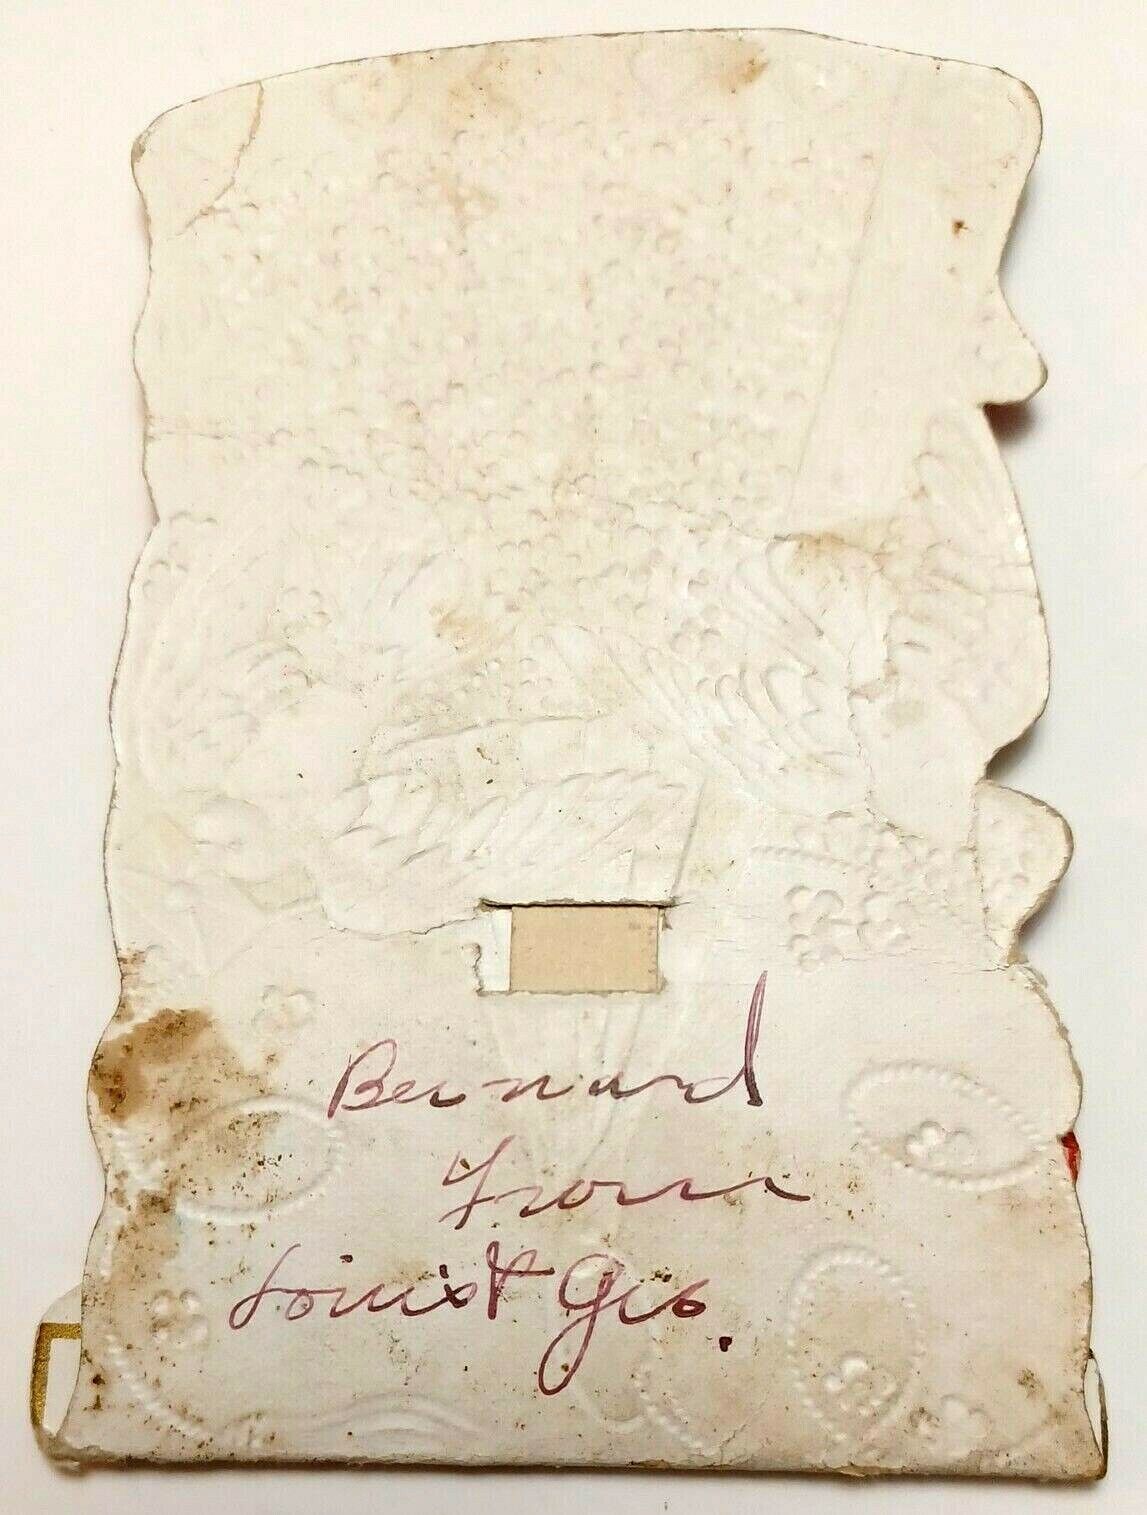 Bernard
From
Louis + Geo.